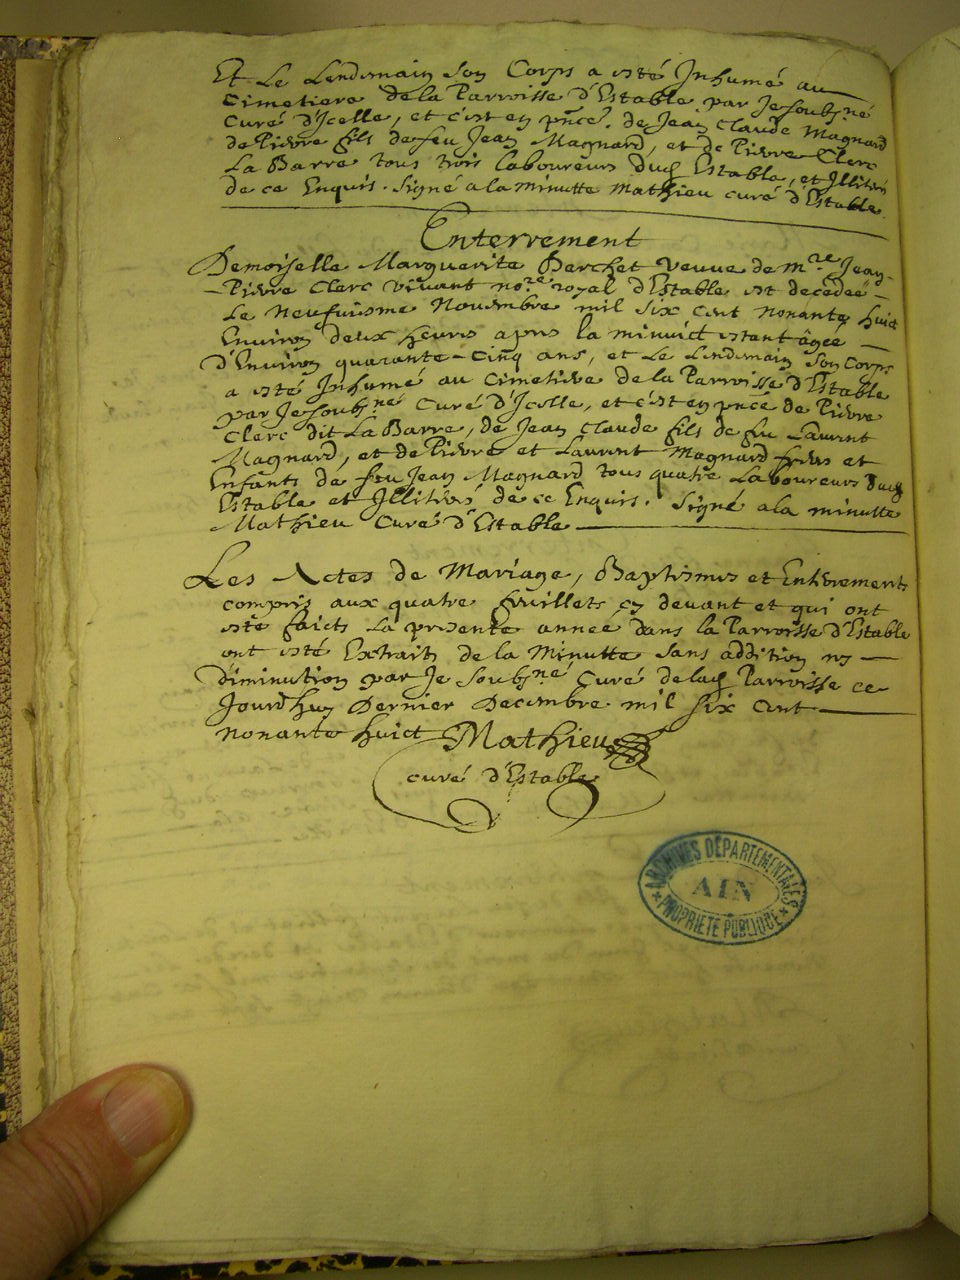 Et Le Lendemain son Corps a esté Inhumé au
Cimetiere de la Parroisse d'Estable par Je soubsné
Curé d'Icelle, et c'est en pnce. de Jean Claude Magnard
de Pierre fils de feu Jean Magnard, et de Pierre Clerc
La Barre tous trois laboureurs dud Estable, et Illiterés
de ce Enquis. Signé a la minutte Mathieu curé d'Estable.
Enterrement
Demoiselle Marguerite Berchet veuve de mre Jean-
Pierre Clerc vivant nore royal d'Estable est decedeé
Le neufviesme Novembre mil six cent nonante huict
Environ deux heures apres la minuict estant âgeé
d'Environ quarante-cinq ans, et Le Lendemain son corps
a esté Inhumé au cimetiere de la Parroisse d'Estable
par Je soubsné Curé d'Icelle, et c'est en pnce de Pierre
Clerc dit La Barre, de Jean Claude fils de feu Laurent
Magnard, et de Pierre et Laurent Magnard freres et
Enfants de feu Jean Magnard tous quatre Laboureurs dud
Estable et Illiterés de ce Enquis. Signé a la minutte
Mathieu Curé d'Estable
Les Actes de Mariage, Baptesmes et Enterements
compris aux quatre feuillets cy devant et qui ont
esté faicts la presente anneé dans la Parroisse d'Estable
ont esté Extraits de la Minutte sans addition ny
diminution par Je Soubsné Curé de lad Parroisse ce
Jourd'huy Dernier Decembre mil six cent
nonante huict Mathieu
curé d'Estable
ARCHIVES DÉPARTEMENTALES
AIN
PROPRIÉTÉ PUBLIQUE